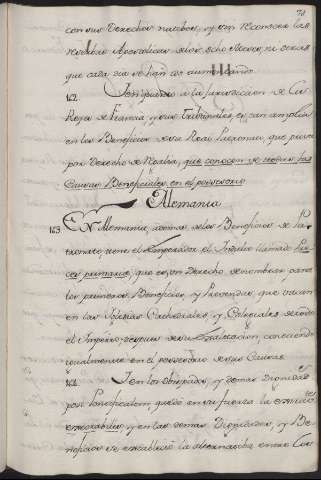 78
con sus Derechos nuebos, y sin reconocer las
reserbas Apostolicas de los ocho Meses, ni otras
que cada dia se han ido aumentando
162. Tempoco a la Jurisdiccion de
Reyes de Francia, y sus Tribunales, es tan amplia
en los Beneficios de su Real Patronato, que provee
por Derecho de Regalia, que conocen de todas las
Causas Beneficiales en el posesorio
Alemania
163. En Alemania, ademas de los Beneficios de Pa-
tronato, tiene el Emperador el Indulto llamado Pre-
ces primarias, que es un Derecho de nombrar para
los primeros Beneficios, y Prevendas, que vacan
en las Yglesias Cathedrales, y Colegiales de todo
el Imperio despues de su Exaltacion, conociendo
igualmente en el posesorio de sus Causas
164. Y en los Obispados, y demas Dignidades
post Pontificalem, quedó en su fuerza la
y en las demas Dignidades, y Be-
neficios se estableció la alternativa entre